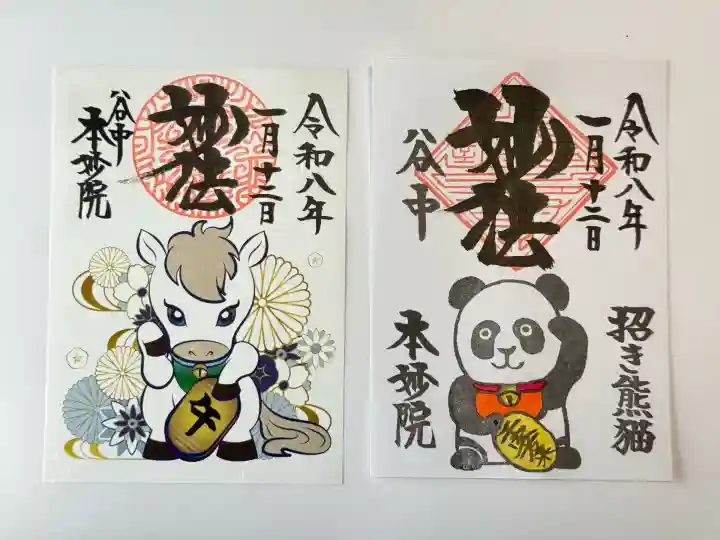 令和八年
一月十二日
妙法
谷中
本妙院
千
令和八年
一月十二日
妙法
谷中
本妙院
招き熊猫